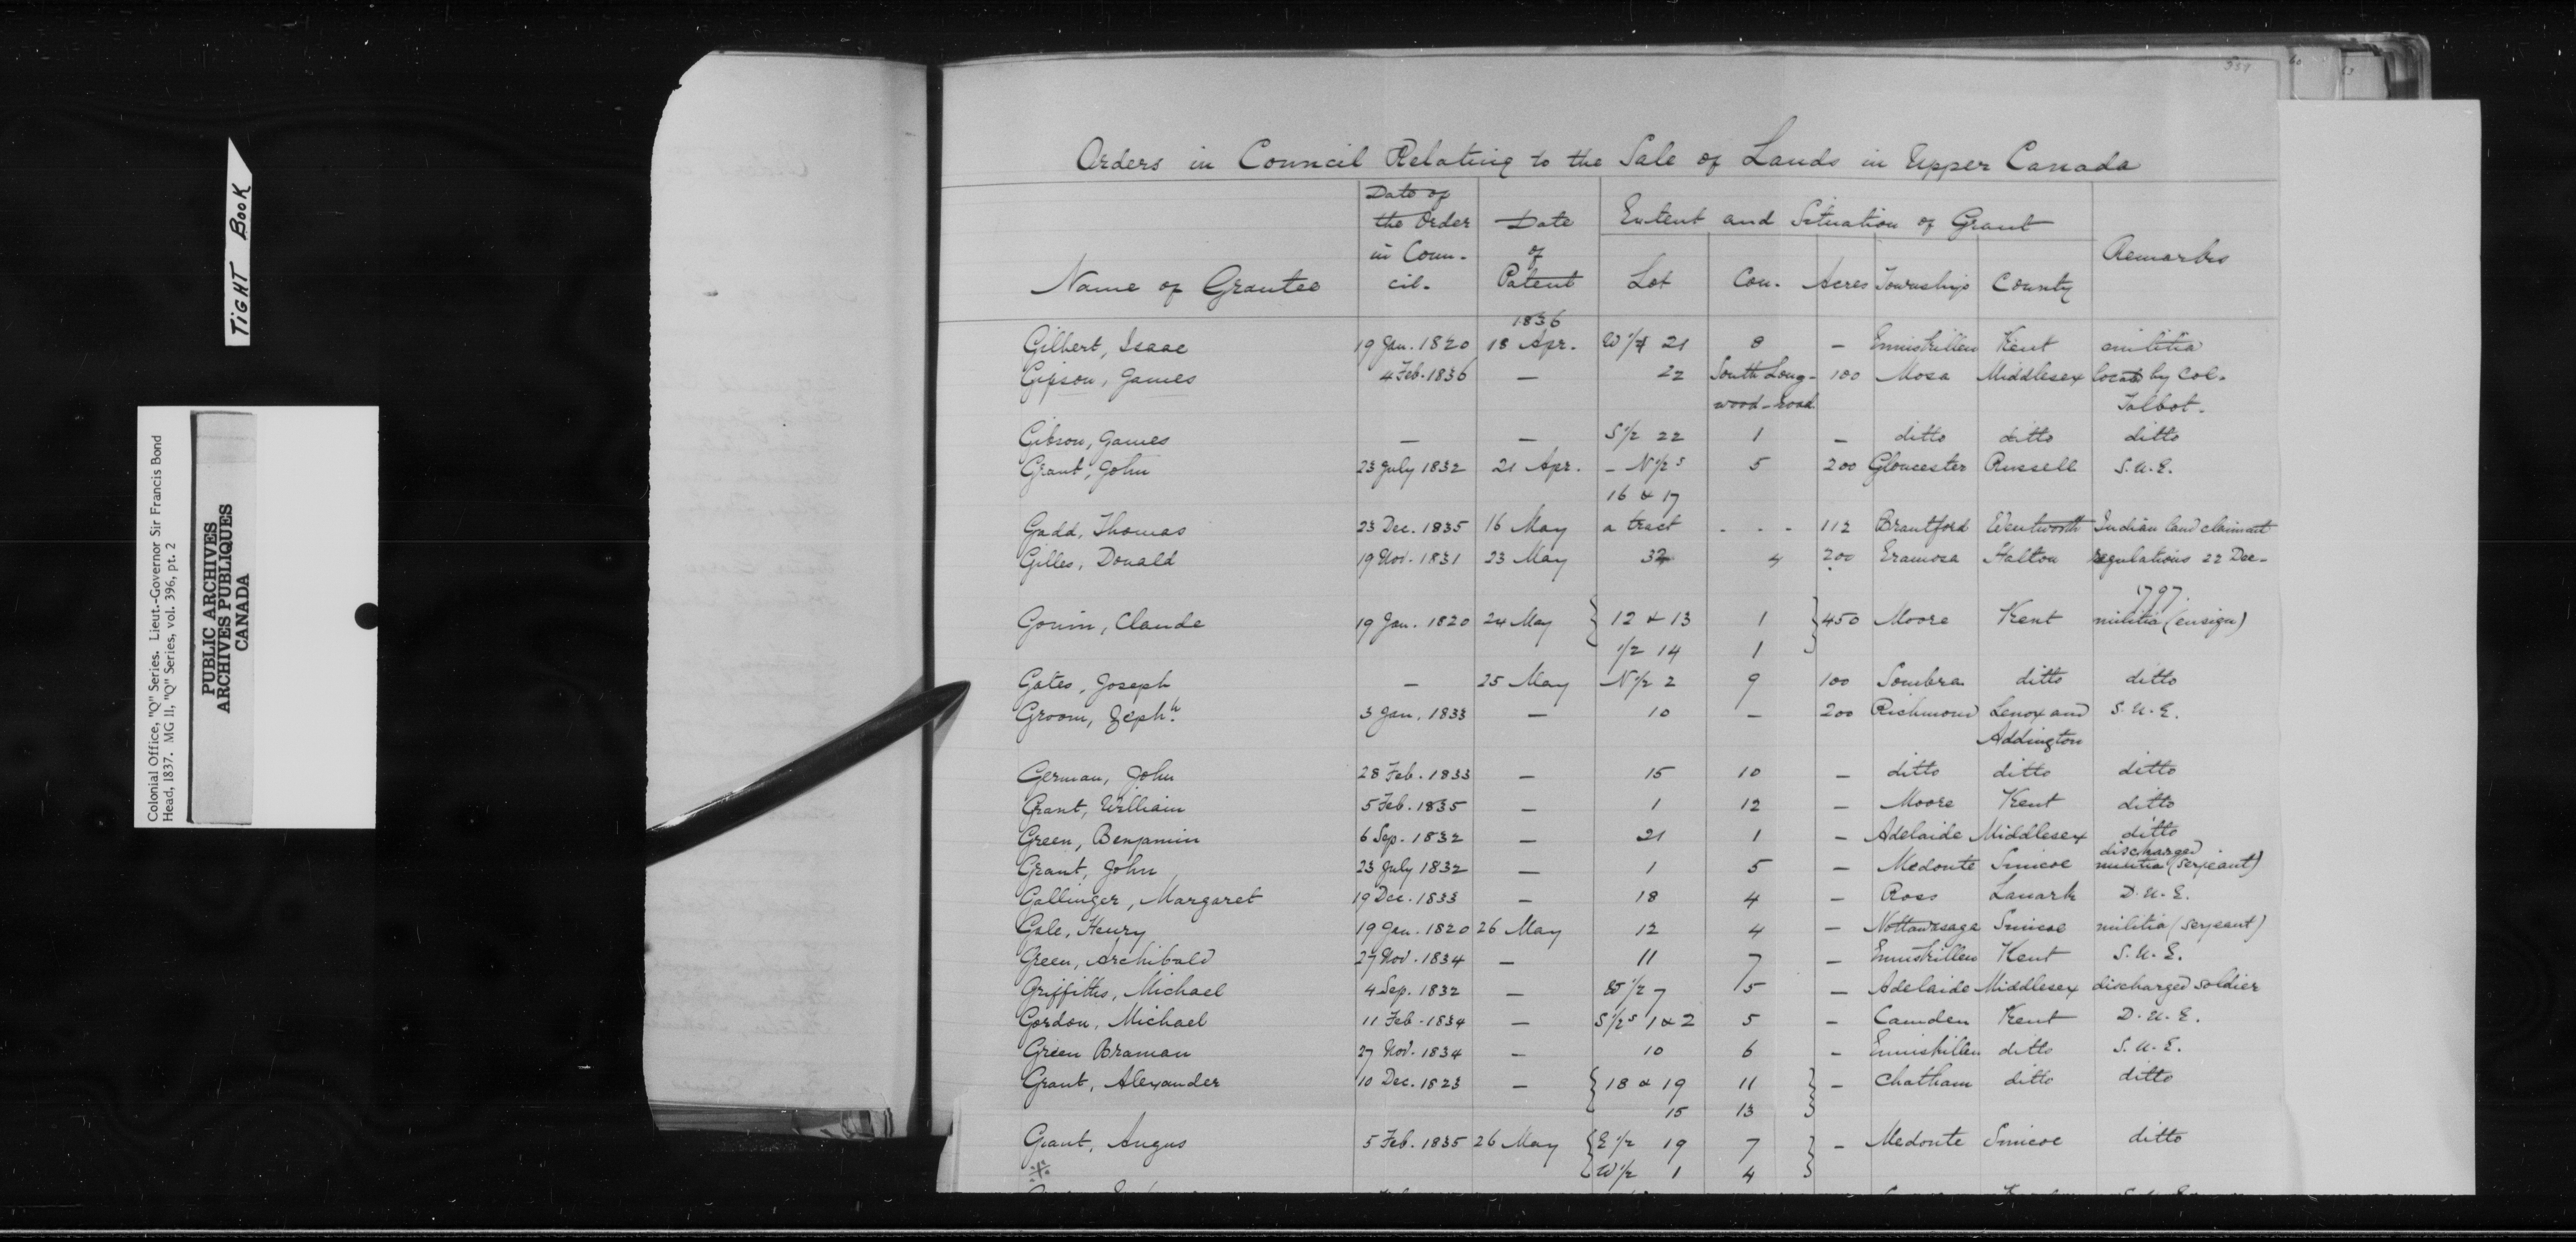 359
60
63
TIGHT BOOK
Colonial Office, "Q" Series. Lieut.-Governor Sir Francis Bond
Head, 1837. MG 11, "Q" Series, vol. 396, pt. 2
PUBLIC ARCHIVES
ARCHIVES PUBLIQUES
CANADA
Orders in Council Relating to the Sale of Lands in Upper Canada
Name of Grantee Date of the Order in Coun-cil. Date of Patent Extent and Situation of Grant Remarks
Lot Con. Acres Townships County
1836
Gilbert, Isaac 19 Jan. 1820 18 Apr. W 1/4 21 8 – Enniskillen Kent militia
Gipson, James 4 Feb. 1836 – 22 South Long- 100 Mosa Middlesex located by Col.
wood-road Talbot.
Gibson, James – – S 1/2 22 1 – ditto ditto ditto
Grant, John 23 July 1832 21 Apr. – N 1/2 s 5 200 Gloucester Russell S.U.E.
16 & 17
Gadd, Thomas 23 Dec. 1835 16 May a tract - - - 112 Brantford Wentworth Indian land claimant
Gilles, Donald 19 Nov. 1831 23 May 32 4 200 Eramosa Halton regulations 22 Dec-
1797.
Gouin, Claude 19 Jan. 1820 24 May { 12 & 13 1 } 450 Moore Kent militia (ensign)
1/2 14 1
Gates, Joseph – 25 May N 1/2 2 9 100 Sombra ditto ditto
Groom, Zeph.h 3 Jan. 1833 – 10 – 200 Richmond Lenox and S.U.E.
Addington
German, John 28 Feb. 1833 – 15 10 – ditto ditto ditto
Grant, William 5 Feb. 1835 – 1 12 – Moore Kent ditto
Green, Benjamin 6 Sep. 1832 – 21 1 – Adelaide Middlesex ditto
discharged
Grant, John 23 July 1832 – 1 5 – Medonte Simcoe militia (serjeant)
Gallinger, Margaret 19 Dec. 1833 – 18 4 – Ross Lanark D.U.E.
Gale, Henry 19 Jan. 1820 26 May 12 4 – Nottawasaga Simcoe militia (serjeant)
Green, Archibald 27 Nov. 1834 – 11 7 – Enniskillen Kent S.U.E.
Griffiths, Michael 4 Sep. 1832 – W 1/2 7 5 – Adelaide Middlesex discharged soldier
Gordon, Michael 11 Feb. 1834 – S 1/2 s 1 & 2 5 – Camden Kent D.U.E.
Green Braman 27 Nov. 1834 – 10 6 – Enniskillen ditto S.U.E.
Grant, Alexander 10 Dec. 1823 – { 18 & 19 11 } – Chatham ditto ditto
15 13
Grant, Angus 5 Feb. 1835 26 May { E 1/2 19 7 } – Medonte Simcoe ditto
W 1/2 1 4